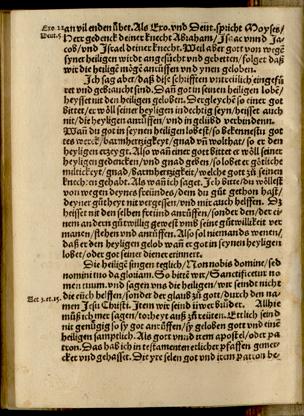 Exo. 32
Deut. 9
an vil enden übet. Als Exo. vnd Deut. spricht Moyses/
Herr gedenck deiner knecht Abraham/ Isaac vnnd Ja-
cob/ vnd Israel deiner knecht. Weil aber gott von wegē
syner heiligen wirdt angesücht vnd gebetten/ folget daß
wir die heiligē mögē anrüffen vnd ynen geloben.
Ich sag aber/ daß dise schrifften vnteütlich eingefü
ret vnd gebraucht sind. Dañ got in seinen heiligen lobē/
heysset nit den heiligen geloben. Dergleychē so einer got
bittet/ er wöll seiner heyligen indechtig seyn/ heisset auch
nit/ die heyligen anrüffen/ vnd in gelübd verbindenn.
Wañ du got in seynen heyligen lobest/ so bekennestu got
tes werck/ barmhertzigkeyt/ gnad vñ wolthat/ so er den
heyligen erzeygt. Also wañ einer got bittet er wöll seiner
heyligen gedencken/ vnd gnad geben/ so lobet er götliche
miltickeyt/ gnad/ barmhertzigkeit/ welche gott zů seinen
knechtē gehabt. Als wañ ich saget. Ich bitt/ du wöllest
von wegen deynes freündes/ dem du gůt gethon hast/
deyner gůtheyt nit vergessen/ vnd mit auch helffen. Dz
heisset nit den selben freünd anrüffen/ sonder den/ der ei-
nem andern gütwillig gewest vmb seiner gütwilickeit ver
manen/ flehen vnd anrüffen. Also sol niemands wenen/
daß er den heyligen gelob wan er got in seynen heyligen
lobet/ oder got seiner diener erinnert.
Die heiligē singen teglich/ Non nobis domine/ sed
nomini tuo da gloriam. So bittē wir/ Sanctificetur no
men tuum. vnd sagen vns die heiligen/ wir seindt nicht
die eüch helffen/ sonder der glauß zů gott/ durch den na-
men Jesu Christi. Item wir seind ewer brüder. Allhie
můß ich mer sagen/ torheyt auß zů reüten. Etlich seind
nit genügig so sy got anrüffen/ sy geloben gott vnd eine
heiligen samptlich. Als gott vnnd item apostel/ oder pa
tron. Das hab ich in testamentenelicher pfaffen gemer-
cket vnd gehasset. Dit yre selen got vnd item patron be-